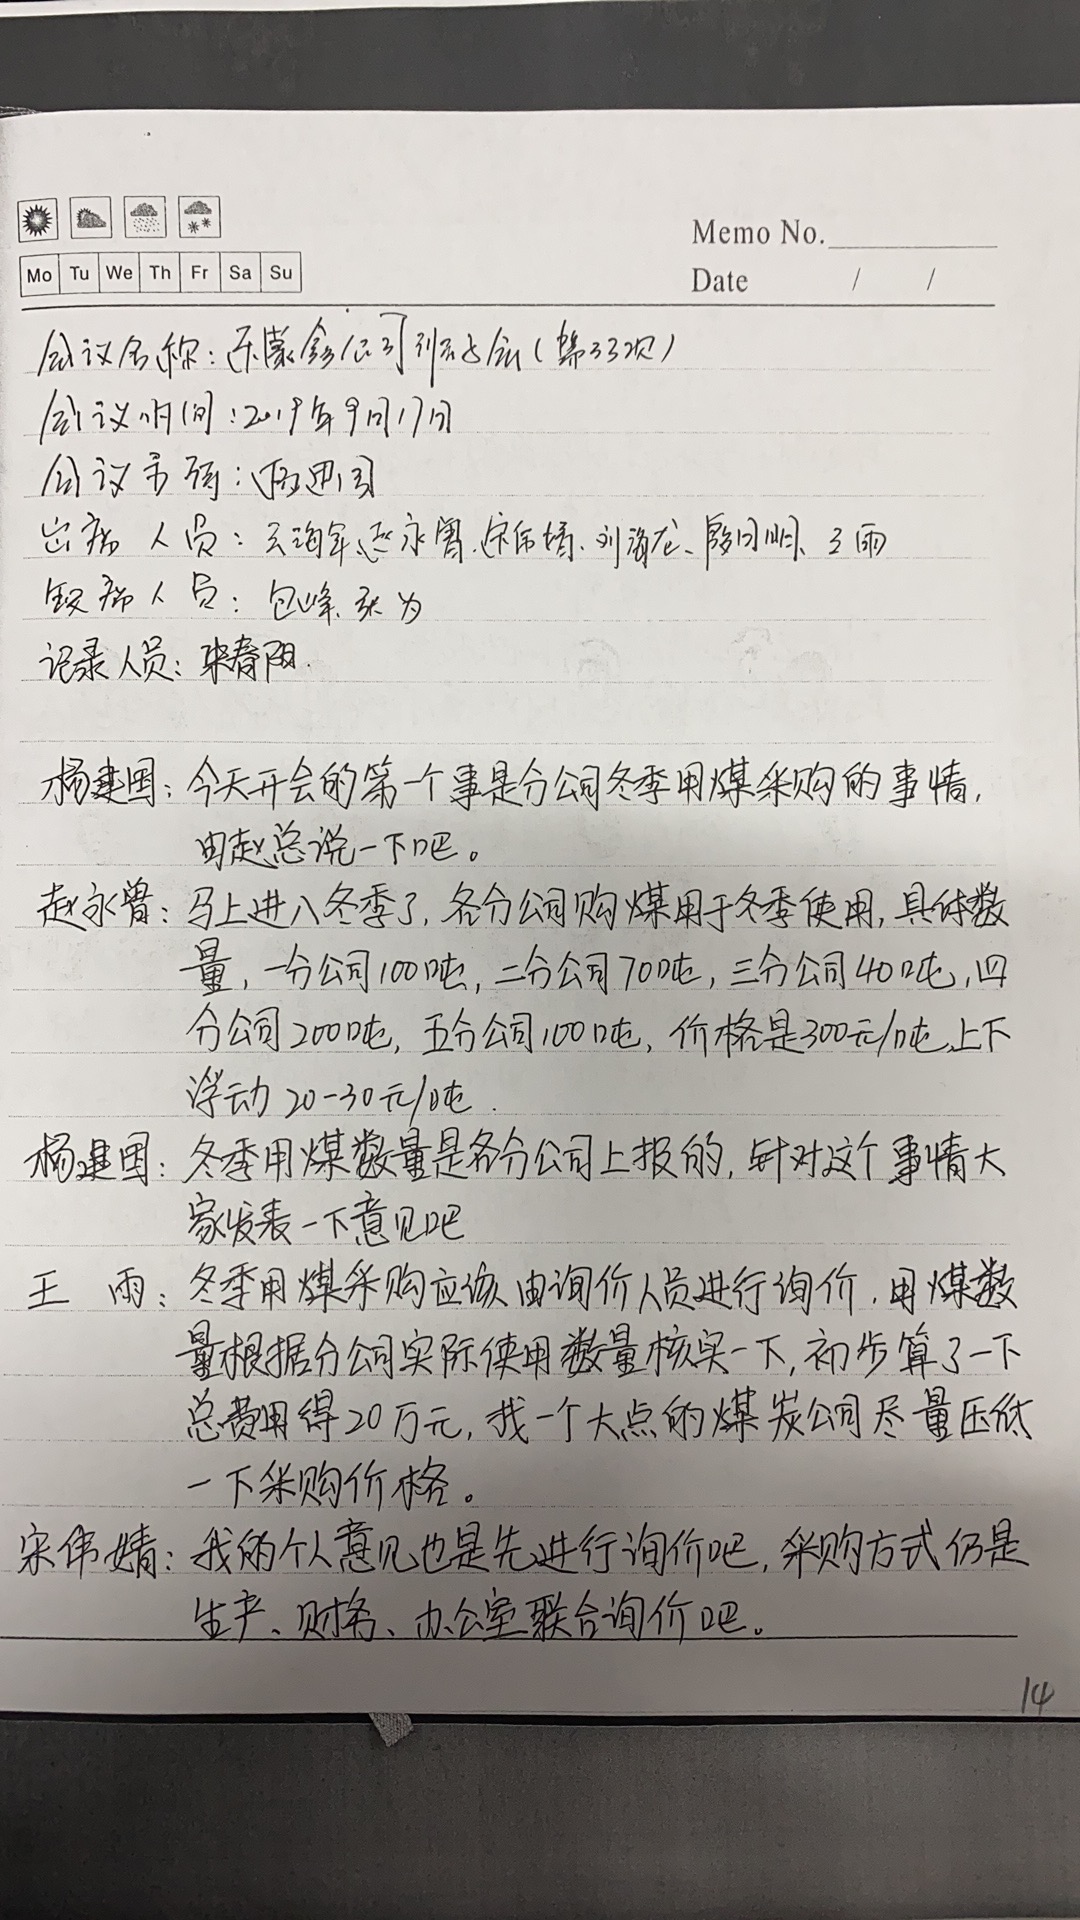 Memo No.
Mo Tu We Th Fr Sa Su
Date / /
会议名称:公司班子会(第33次)
会议时间:2019年9月17日
会议主持:杨建国
出席人员:云海军、赵永曾、宋伟婧、刘海龙、殷日明、王雨
缺席人员:包峰、张为
记录人员:宋春阳.
杨建国:今天开会的第一个事是分公司冬季用煤采购的事情,
由赵总说一下吧。
赵永曾:马上进入冬季了,各分公司购煤用于冬季使用,具体数
量,一分公司100吨,二分公司70吨,三分公司40吨,四
分公司200吨,五分公司100吨,价格是300元/吨,上下
浮动20-30元/吨.
杨建国:冬季用煤数量是各分公司上报的,针对这个事情大
家发表一下意见吧
王 雨:冬季用煤采购应该由询价人员进行询价,用煤数
量根据分公司实际使用数量核实一下,初步算了一下
总费用得20万元,找一个大点的煤炭公司尽量压低
一下采购价格。
宋伟婧:我的个人意见也是先进行询价吧,采购方式仍是
生产、财务、办公室联合询价吧。
14